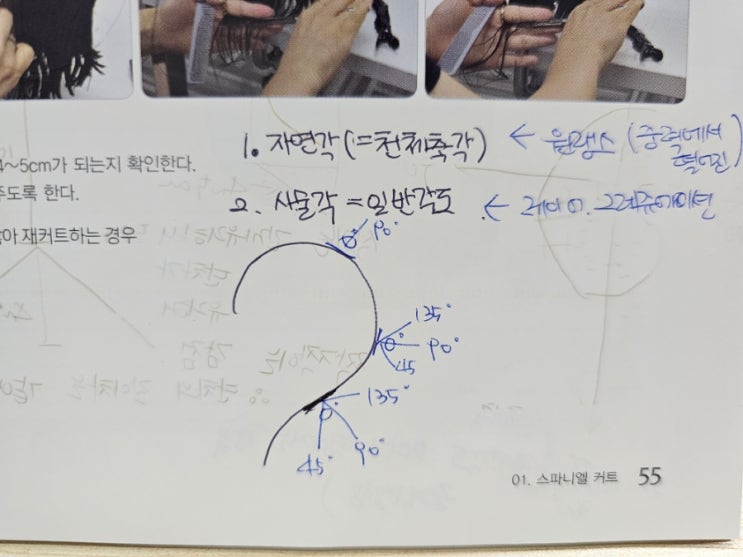 1. 자연각(=천체축각) ← 원랭스 (중력에서
4~5cm가 되는지 확인한다.
주도록 한다.
2. 사물각 = 일반각도 ← 레이어. 그래쥬에이션
재커트하는 경우
0° 90°
135°
0° 90°
45
135°
0°
45° 90°
01. 스파니엘 커트 55